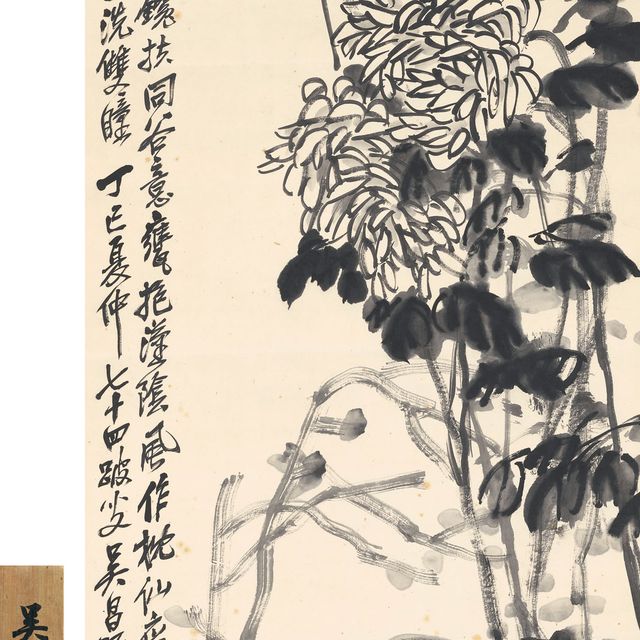 鑱扶同谷意甕抱漢陰風作枕仙
洗雙瞳丁巳夏仲七十四跛叟吳昌
吳